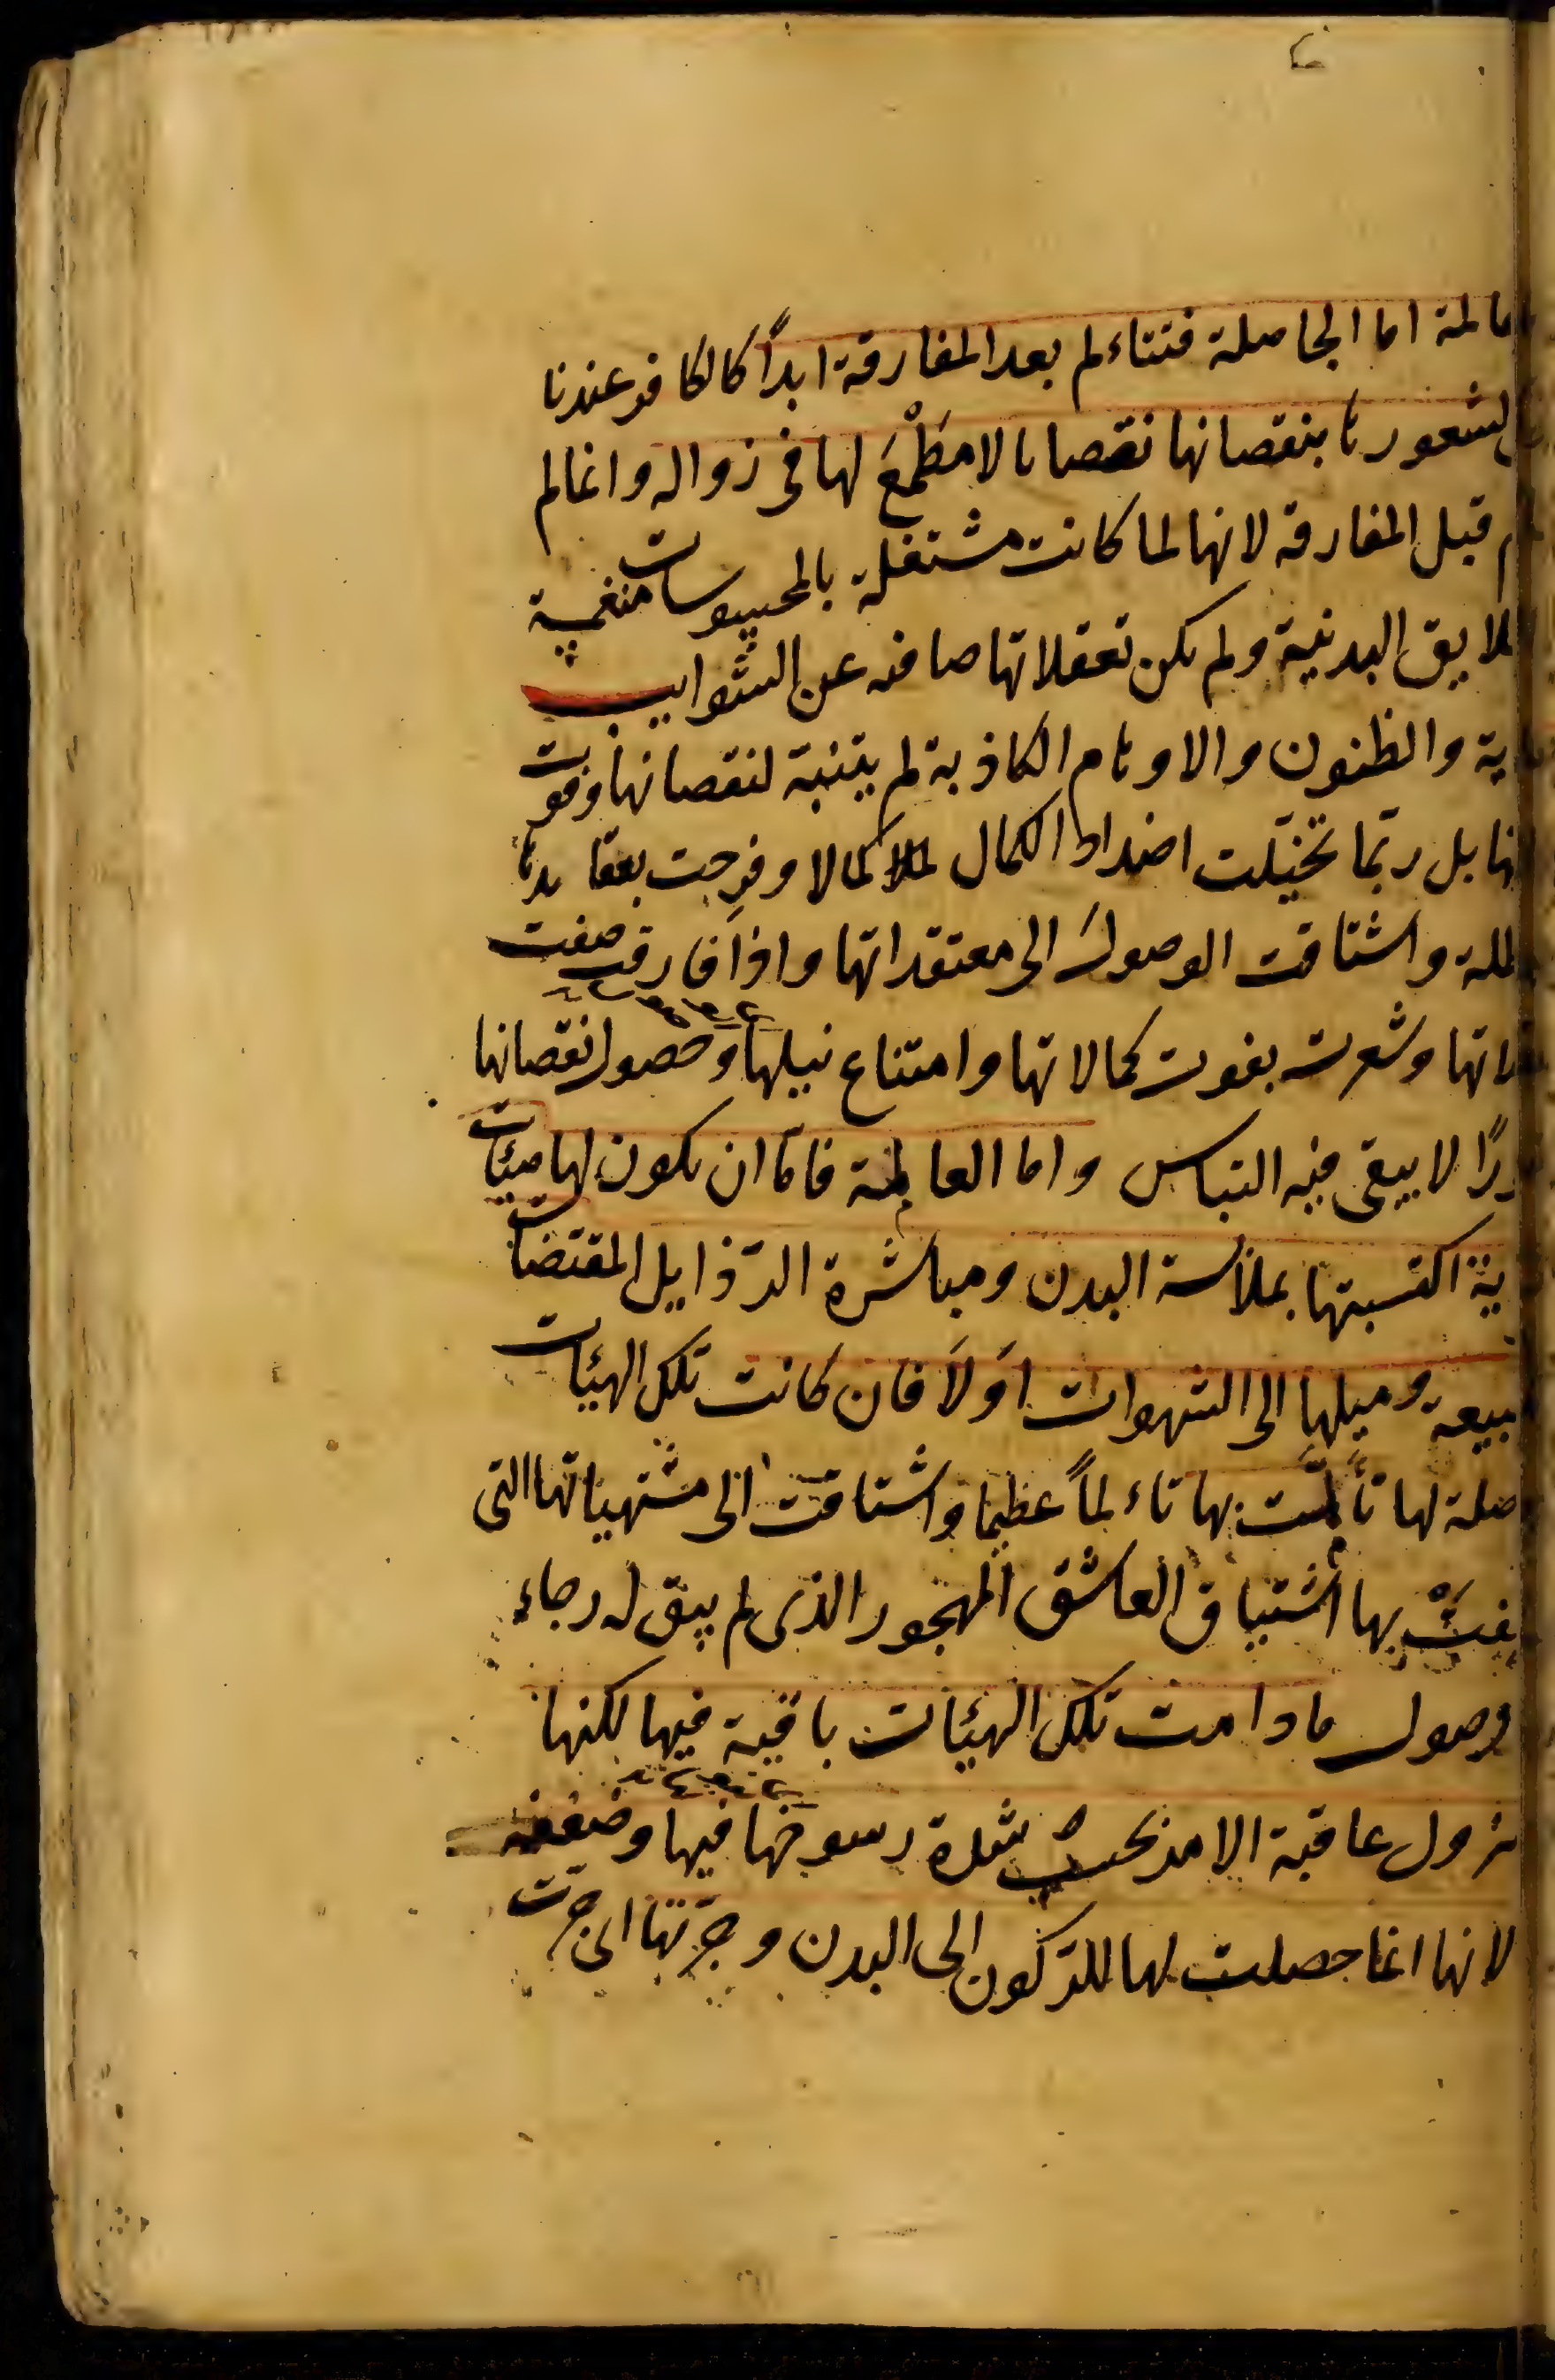 عالمة اما الجاهلة فتتاءلم بعد المفارقة ابدًا كالكافر عندنا
لشعورها بنقصانها نقصانا لا مَطْمَعَ لها فى زواله وانما لم
قبل المفارقة لانها لما كانت مشتغلة بالمحسوسات منغمسة
البدنية ولم يكن تعقلاتها صافيه عن الشوايب
والظنون والاوهام الكاذبة لم يتنبة لنقصانها وفوت
بل ربّما تخيّلت اضداد الكمال كمالا وفرِحت بعقايدها
واشتاقت الوصولَ الى معتقداتها واذا فارقت صفت
وشعرت بفوت كمالاتها وامتناع نيلها وحصول نقصانها
لا يبقى فيه التباس واما العالمة فامّا ان يكون لها هيئات
اكتسبتها بملابسة البدن ومباشرة الرّذايل المقتضات
وميلها الى الشهوات اوَلاَ فان كانت تلك الهيئات
لها تألمّت بها تاءلماً عظيما واشتاقت الى مشتهياتها التى
بها اشتياق العاشق المهجور الذى لم يبق له رجاء
وصول ما دامت تلك الهيئات باقية فيها لكنها
تزول عاقبة الامر بحسب شدة رسوخها فيها وضعفه
لانها انما حصلت لها للرّكون الى البدن وجرّتها اى جرّت